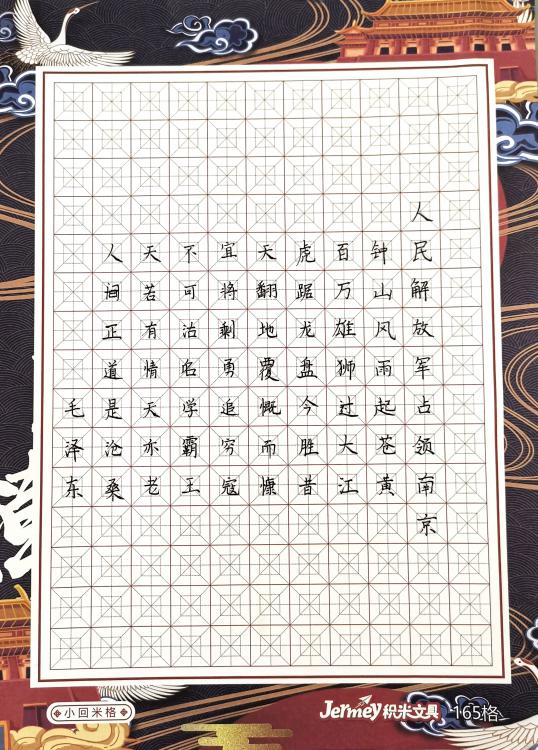 人民解放军占领南京
钟山风雨起苍黄
百万雄狮过大江
虎踞龙盘今胜昔
天翻地覆慨而慷
宜将剩勇追穷寇
不可沽名学霸王
天若有情天亦老
人间正道是沧桑
毛泽东
小回米格
Jermey积米文具 165格